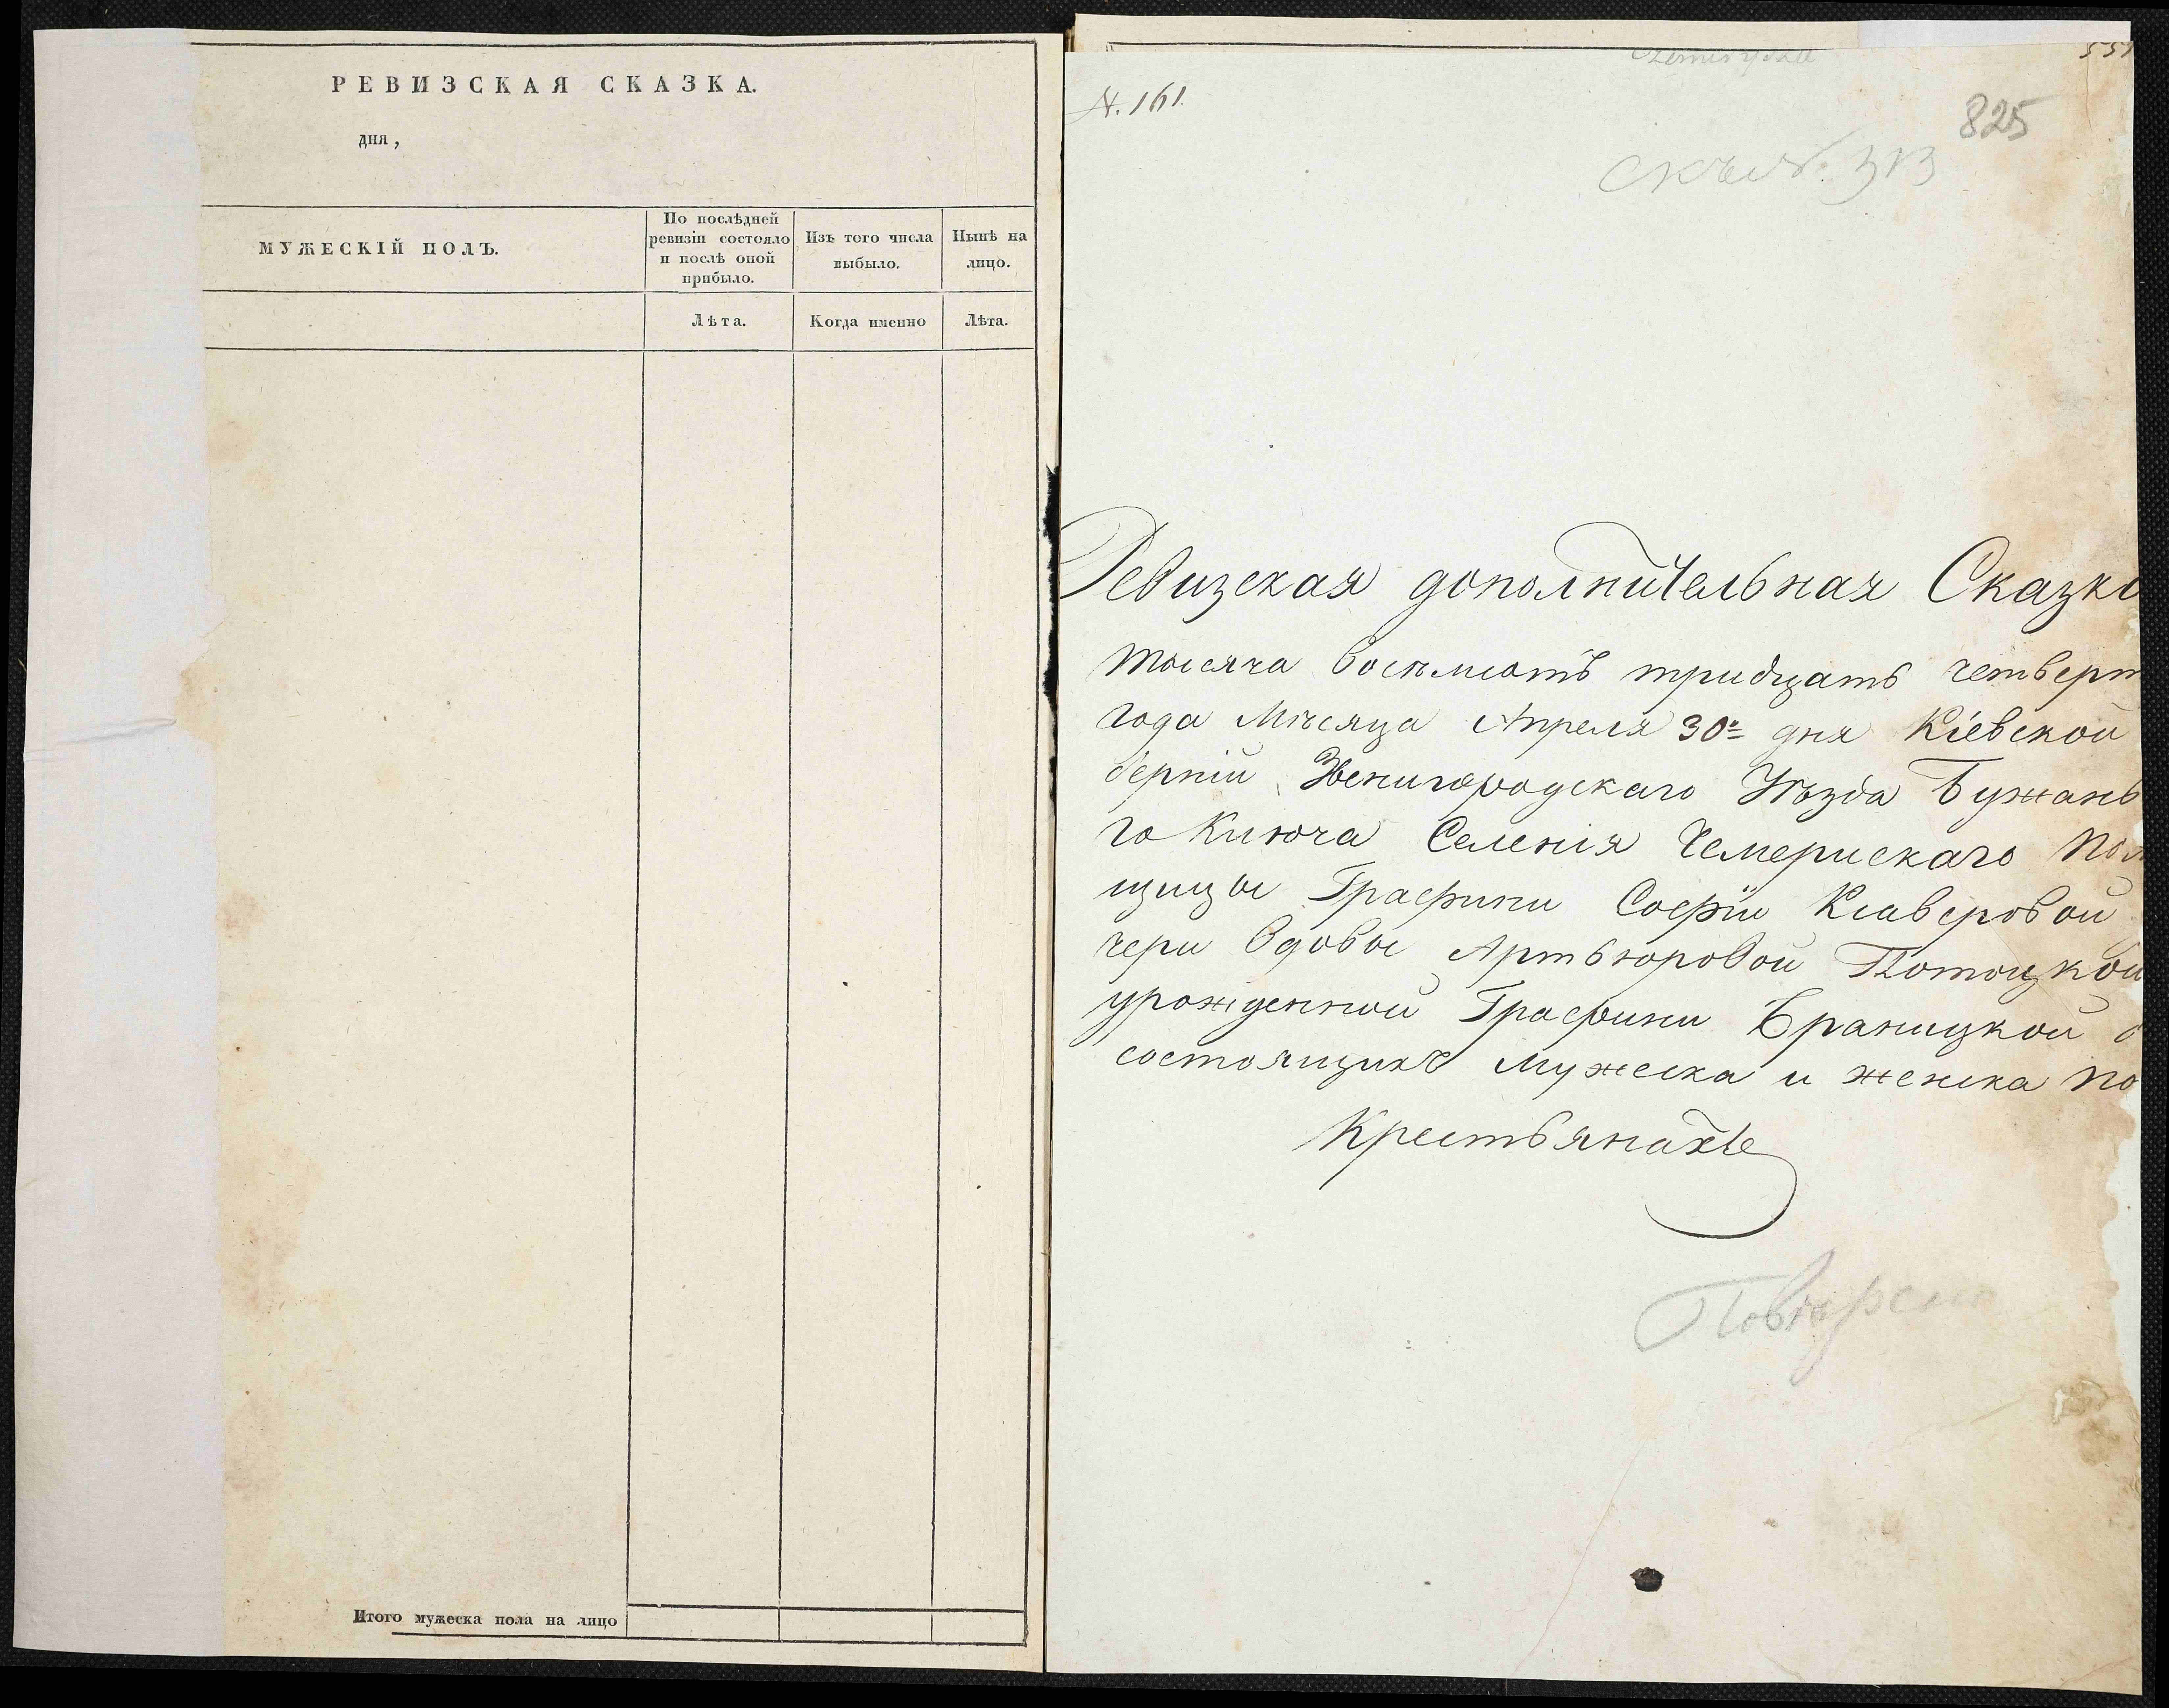 РЕВИЗСКАЯ СКАЗКА.
дня,
МУЖЕСКІЙ ПОЛЪ.
По послѣдней ревизіи состояло и послѣ оной прибыло.
Изъ того числа выбыло.
Нынѣ на лицо.
Лѣта.
Когда именно
Лѣта.
Итого мужеска пола на лицо
N. 161.
825
Ревизская дополнительная Сказка
тысяча восемьсотъ тридцать четверт
года Мѣсяца Апреля 30 дня Кіевской
берніи Звенигородскаго Уѣзда Бужанс
го Ключа Селенія Чемерискаго пом
щицы Графини Софіи Ксаверовой
чери вдовы Артьюровой Потоцкой
урожденной Графини Браницкой о
состоящихъ мужеска и женска по
Крестьянахъ
Повѣрена